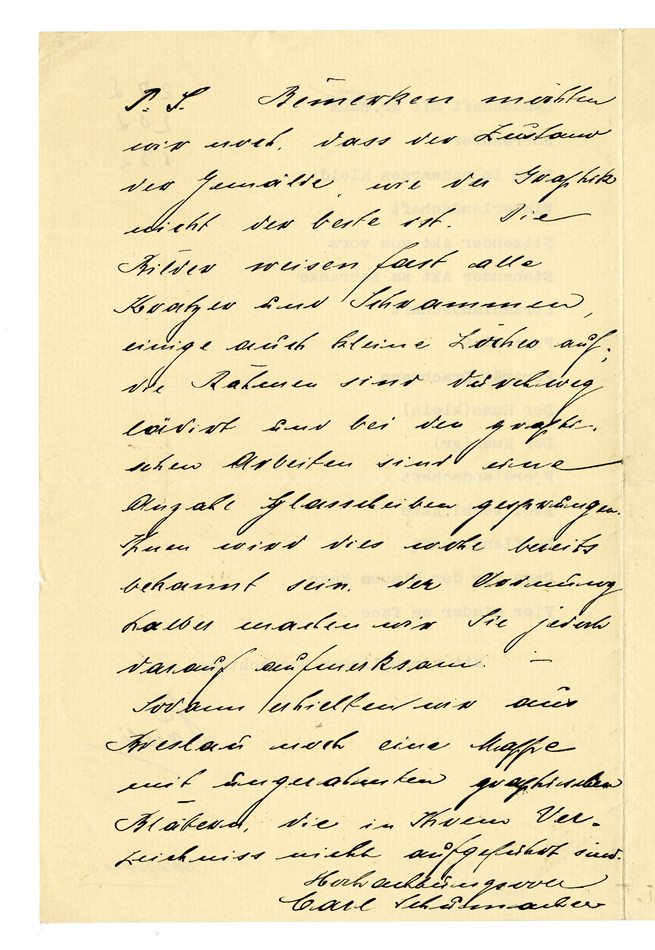 P. S. Bemerken möchten
wir noch, dass der Zustand
der Gemälde, wie der Graphik
nicht der beste ist. Die
Bilder weisen fast alle
Kratzer und Schrammen,
einige auch kleine Löcher auf;
die Rähmen sind durchweg
lädirt und bei den graphi-
schen Arbeiten sind eine
Anzahl Glasscheiben gesprungen.
Ihnen wird dies wohl bereits
bekannt sein, der Ordnung
halber machen wir Sie jedoch
darauf aufmerksam. —
Sodann erhielten wir aus
Breslau noch eine Mappe
mit ungerahmten graphischen
Blätern, die in Ihrem Ver-
zeichniss nicht aufgeführt sind.
Hochachtungsvoll
Carl Schumacher